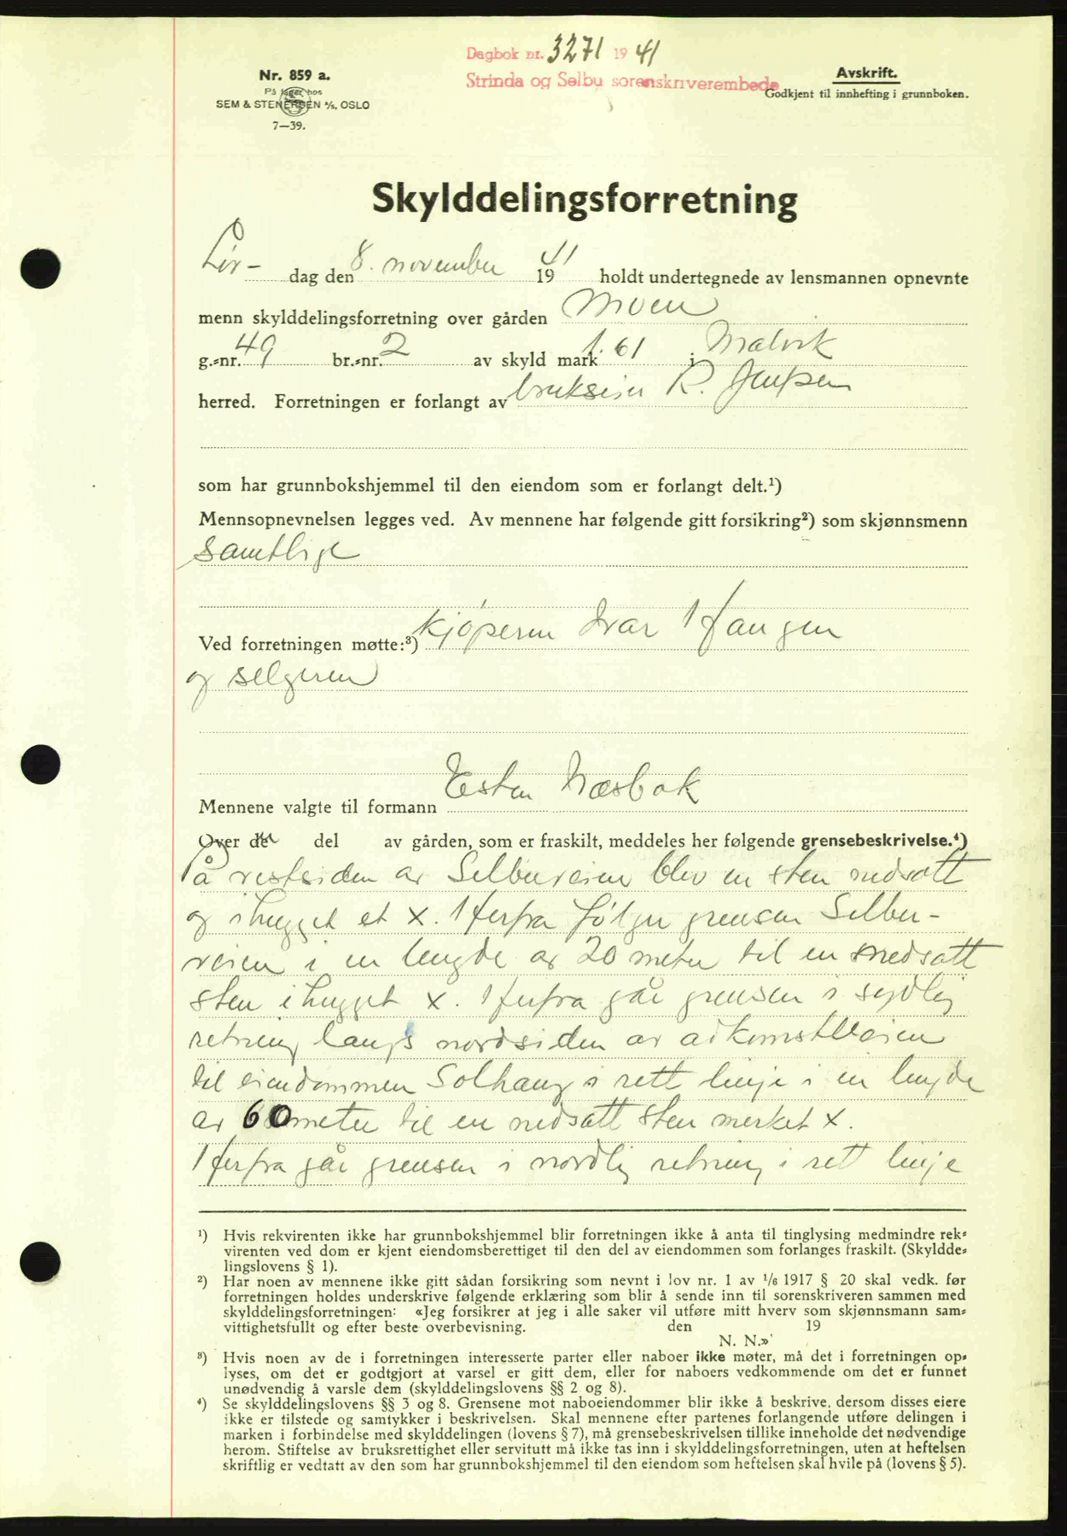 Dagbok nr. 3271 1941
Strinda og Selbu sorenskriverembede
Nr. 859 a.
På lager hos
SEM & STENERSEN A/S, OSLO
7—39.
Avskrift.
Godkjent til innhefting i grunnboken.
Skylddelingsforretning
Lør- dag den 8. november 1941 holdt undertegnede av lensmannen opnevnte
menn skylddelingsforretning over gården Moen
g.-nr. 49 br.-nr. 2 av skyld mark 1.61 i Malvik
herred. Forretningen er forlangt av brukseier R. Jenssen
som har grunnbokshjemmel til den eiendom som er forlangt delt.¹)
Mennsopnevnelsen legges ved. Av mennene har følgende gitt forsikring²) som skjønnsmenn
samtlige
Ved forretningen møtte:³) kjøperen Ivar Haugen
og selgeren
Mennene valgte til formann Esten Næsbak
Over den del av gården, som er fraskilt, meddeles her følgende grensebeskrivelse.⁴)
På vestsiden av Selbuveien blev en sten nedsatt
og ihugget et x. Herfra følger grensen Selbu-
veien i en lengde av 20 meter til en nedsatt
sten ihugget x. Herfra går grensen i sydlig
retning langs nordsiden av adkomstveien
til eiendommen Solhaug i rett linje i en lengde
av 60 meter til en nedsatt sten merket x.
Herfra går grensen i nordlig retning i rett linje
¹) Hvis rekvirenten ikke har grunnbokshjemmel blir forretningen ikke å anta til tinglysing medmindre rek-
virenten ved dom er kjent eiendomsberettiget til den del av eiendommen som forlanges fraskilt. (Skyldde-
lingslovens § 1).
²) Har noen av mennene ikke gitt sådan forsikring som nevnt i lov nr. 1 av 1/6 1917 § 20 skal vedk. før
forretningen holdes underskrive følgende erklæring som blir å sende inn til sorenskriveren sammen med
skylddelingsforretningen: «Jeg forsikrer at jeg i alle saker vil utføre mitt hverv som skjønnsmann sam-
vittighetsfullt og efter beste overbevisning. den 19
N. N.»
³) Hvis noen av de i forretningen interesserte parter eller naboer ikke møter, må det i forretningen op-
lyses, om det er godtgjort at varsel er gitt dem, eller for naboers vedkommende om det er funnet
unødvendig å varsle dem (skylddelingslovens §§ 2 og 8).
⁴) Se skylddelingslovens §§ 3 og 8. Grensene mot naboeiendommer blir ikke å beskrive, dersom disses eiere
ikke er tilstede og samtykker i beskrivelsen. Skal mennene efter partenes forlangende utføre delingen i
marken i forbindelse med skylddelingen (lovens § 7), må grensebeskrivelsen tillike inneholde det nødvendige
herom. Stiftelse av bruksrettighet eller servitutt må ikke tas inn i skylddelingsforretningen, uten at heftelsen
skriftlig er vedtatt av den som har grunnbokshjemmel til den eiendom som heftelsen skal hvile på (lovens § 5).